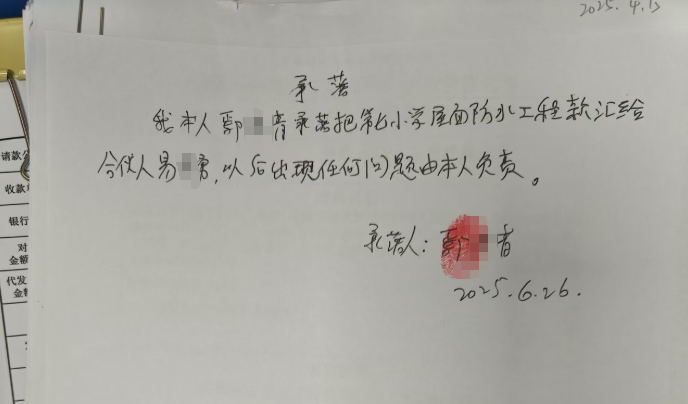 2025.4.13
承诺
我本人郭 青承诺把第七小学屋面防水工程款汇给
合伙人易 勇,以后出现任何问题由本人负责。
承诺人：郭 青
2025.6.26.
请款
收款
银行
对
金额
代发
金额